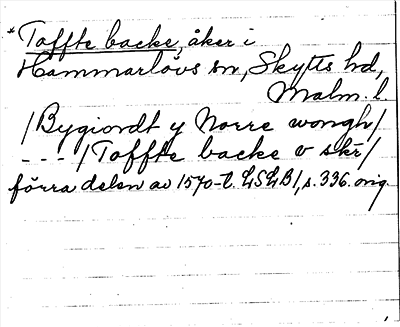 *Toffte backe, åker i
Hammarlövs sn, Skytts hd,
Malm. l.
/Bygiordt y Norre wongh/
---/Toffte backe v skr/
förra delen av 1570-t. LSLB1, s. 336. orig.